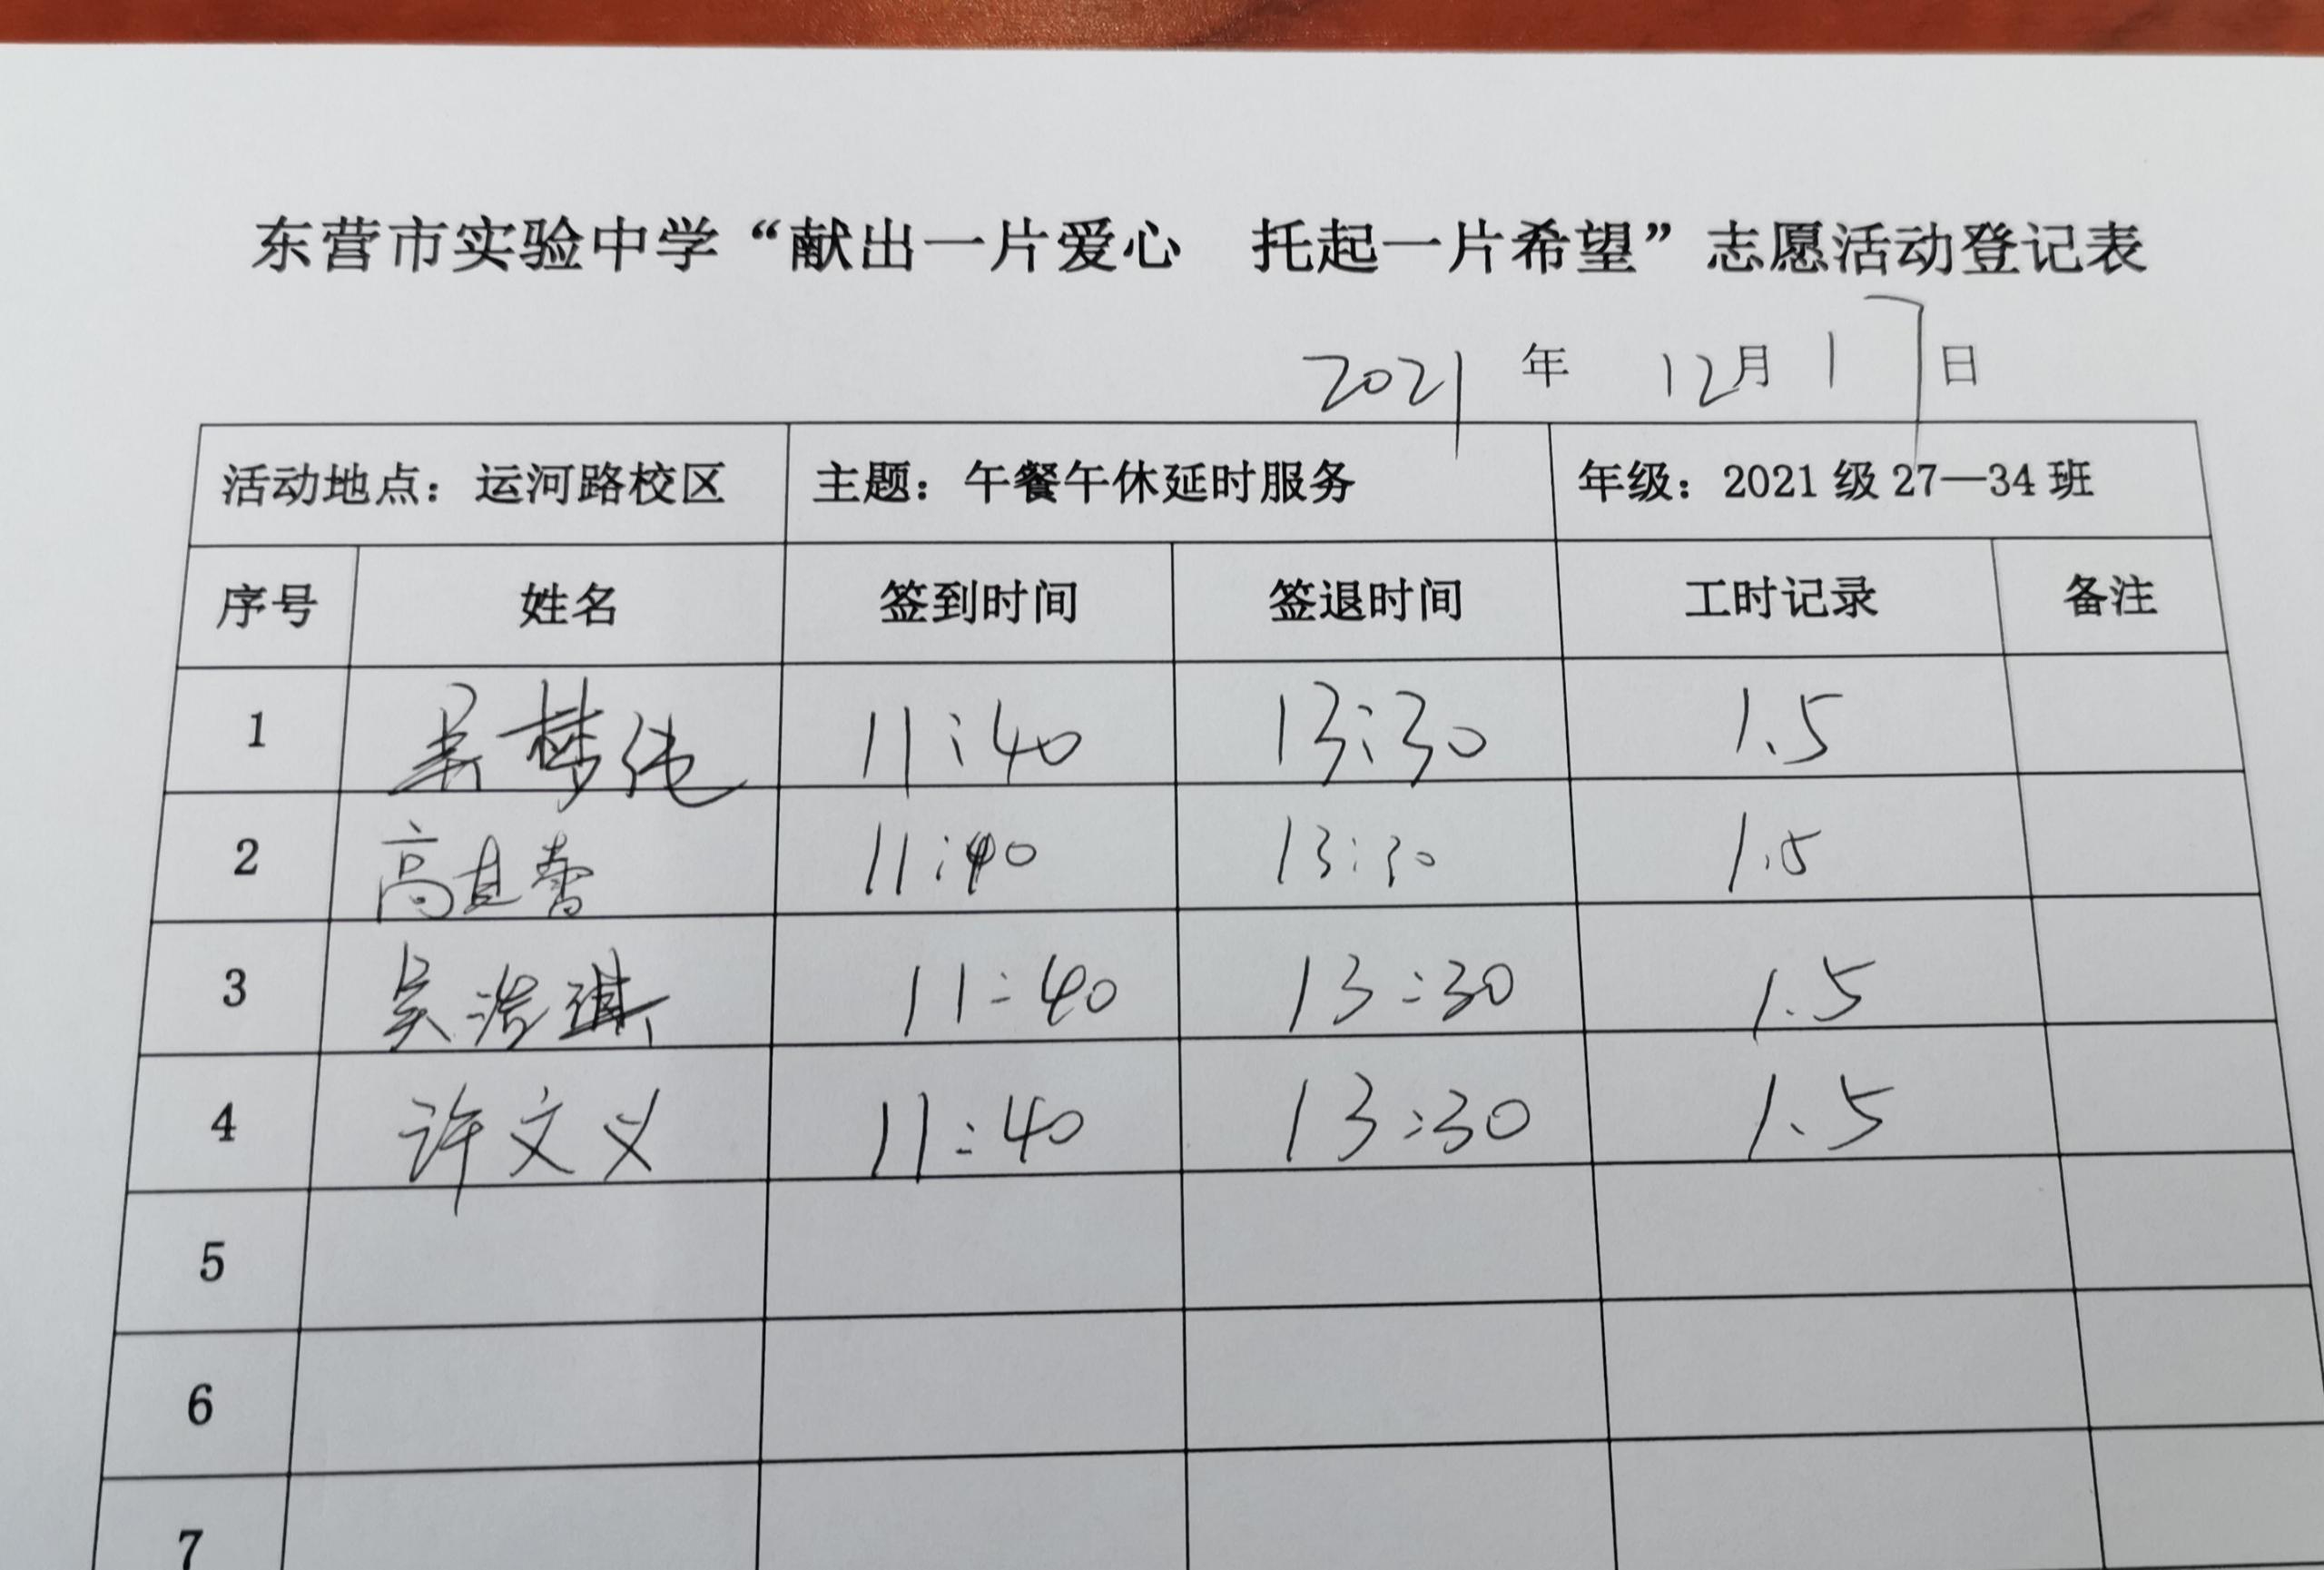 东营市实验中学“献出一片爱心 托起一片希望”志愿活动登记表
2021 年 12月 17日
活动地点：运河路校区 主题：午餐午休延时服务 年级：2021级27—34班
序号 姓名 签到时间 签退时间 工时记录 备注
1 吴梦 11:40 13:30 1.5
2 高 11:40 13:30 1.5
3 吴浩琪 11:40 13:30 1.5
4 许文义 11:40 13:30 1.5
5
6
7